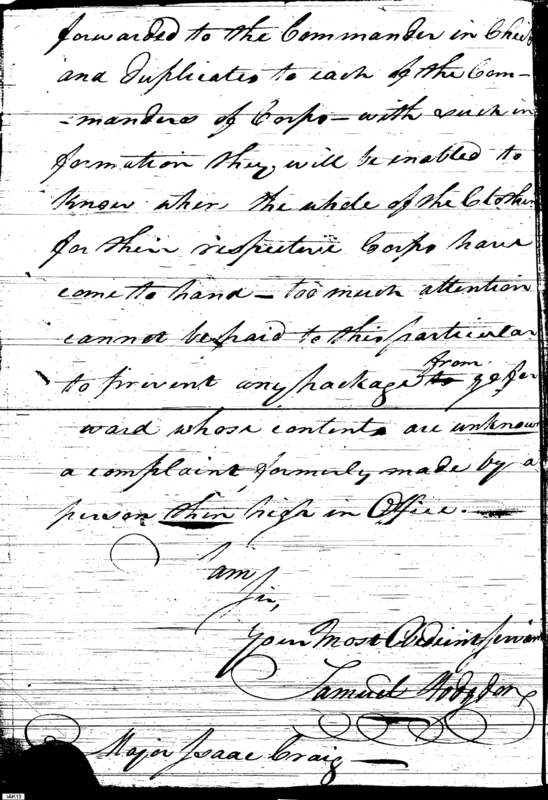 forwarded to the Commander in Chief
and duplicates to each of the Com-
-manders of Corps - with such in
formation they will be enabled to
know when the whole of the Clothing
for their respective Corps have
come to hand - too much attention
cannot be paid to this particular
to prevent any package to from go for
ward whose contents are unknown
a complaint formerly made by a
person then high in Office.
I am
Sir,
Your Most Obedient servant
Samuel Hodgdon
Major Isaac Craig
IAK13